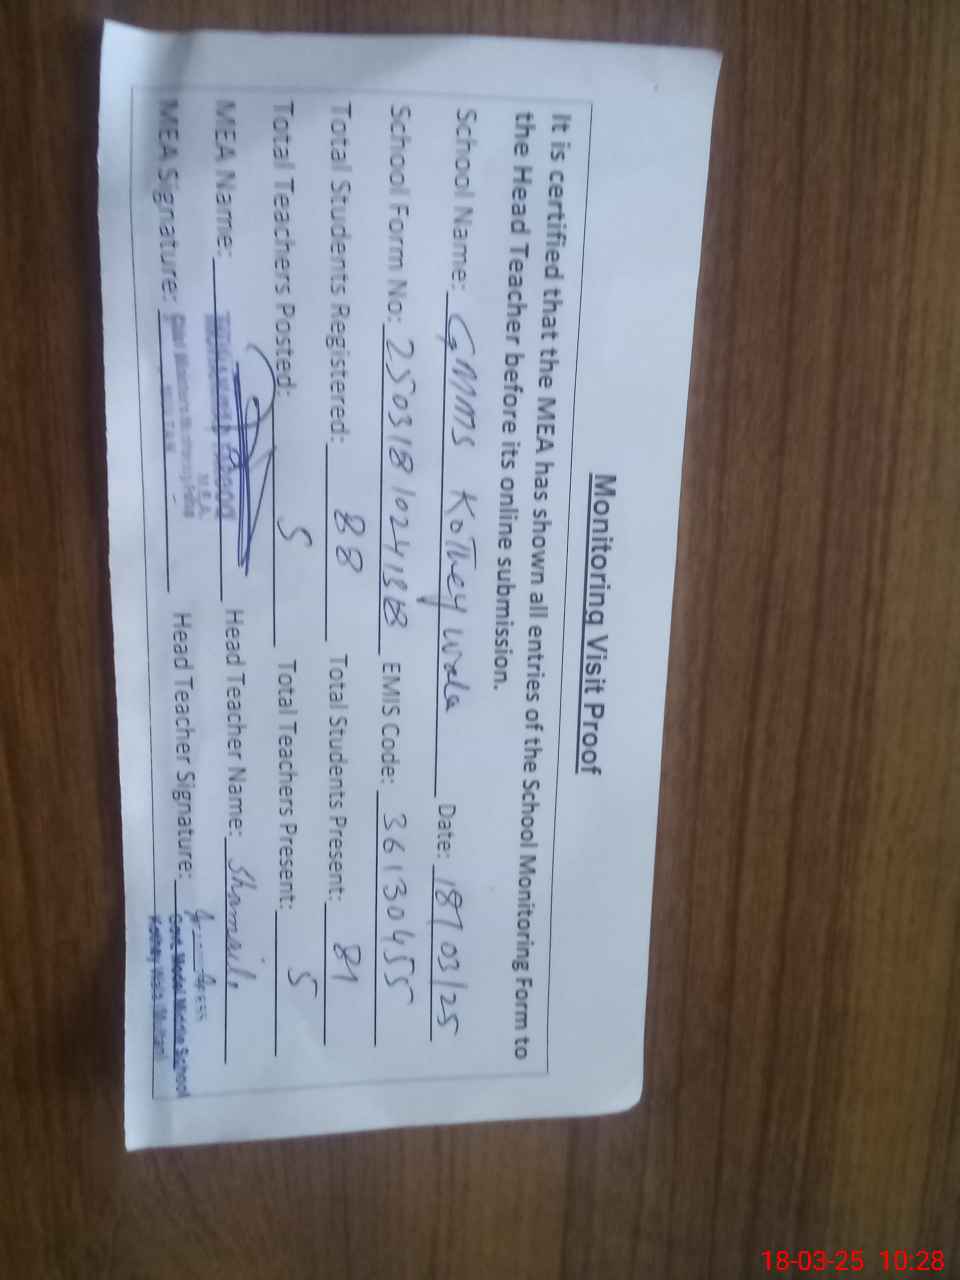 Monitoring Visit Proof
It is certified that the MEA has shown all entries of the School Monitoring Form to
the Head Teacher before its online submission.
School Name: GMMS Kothey wala Date: 18/03/25
School Form No: 250318102413B EMIS Code: 36130455
Total Students Registered: 88 Total Students Present: 81
Total Teachers Posted: 5 Total Teachers Present: 5
MEA Name: Head Teacher Name: Shamaila
MEA Signature: Head Teacher Signature:
Govt. Model Middle School
Kothey Wala (Multan)
18-03-25 10:28